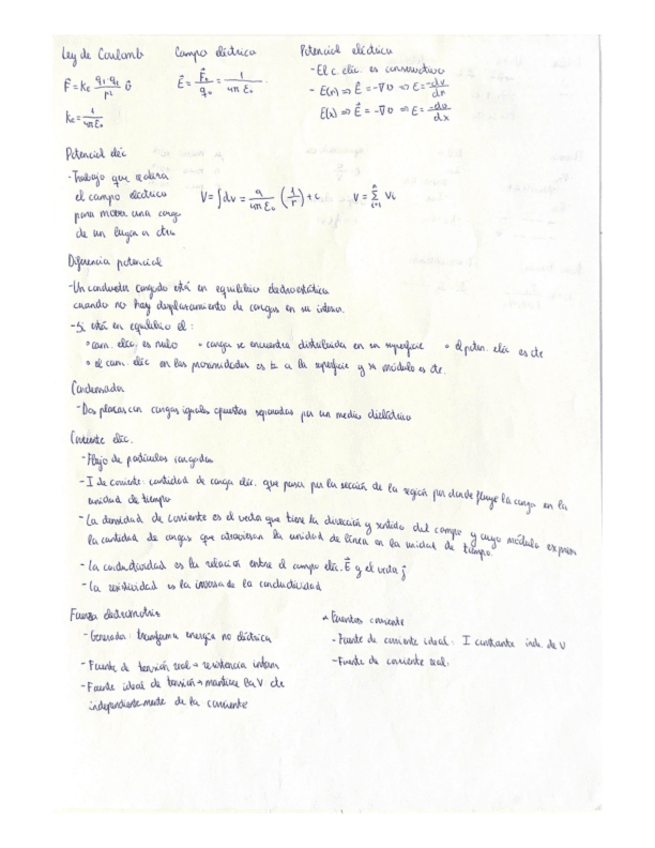 Ley de Coulomb
F⃗ = ke q₁·q₂/r² û
ke = 1/4πε₀
Campo eléctrico
E⃗ = F⃗e/q₀ = 1/4πε₀
Potencial eléctrico
- El c. eléc. es conservativo
- E(r) ⇒ E⃗ = -∇v ⇒ E = -dv/dr
E(x) ⇒ E⃗ = -∇v ⇒ E = -dv/dx
Potencial eléc
- Trabajo que realiza
el campo eléctrico
para mover una carga
de un lugar a otro
V = ∫dv = q/4πε₀ (1/r) + c
V = Σ Vi
Diferencia potencial
- Un conductor cargado está en equilibrio electrostático
cuando no hay desplazamiento de cargas en su interior.
- Si está en equilibrio el:
° cam. eléc. es nulo ° carga se encuentra distribuida en su superficie ° el poten. eléc es cte
° el cam. eléc en las proximidades es a la superficie y su módulo es cte.
Condensador
- Dos placas con cargas iguales opuestas separadas por un medio dieléctrico
Corriente eléc.
- Flujo de partículas cargadas
- I de corriente: cantidad de carga eléc. que pasa por la sección de la región por donde fluye la carga en la
unidad de tiempo
- La densidad de corriente es el vector que tiene la dirección y sentido del campo y cuyo módulo expresa
la cantidad de cargas que atraviesan la unidad de línea en la unidad de tiempo.
- La conductividad es la relación entre el campo eléc. E⃗ y el vector j
- La resistividad es la inversa de la conductividad
Fuerza electromotriz
- Generador: transforma energía no eléctrica
- Fuente de tensión real → resistencia interna
- Fuente ideal de tensión → mantiene la V cte
independientemente de la corriente
Fuentes corriente
- Fuente de corriente ideal: I constante ind. de V
- Fuente de corriente real: